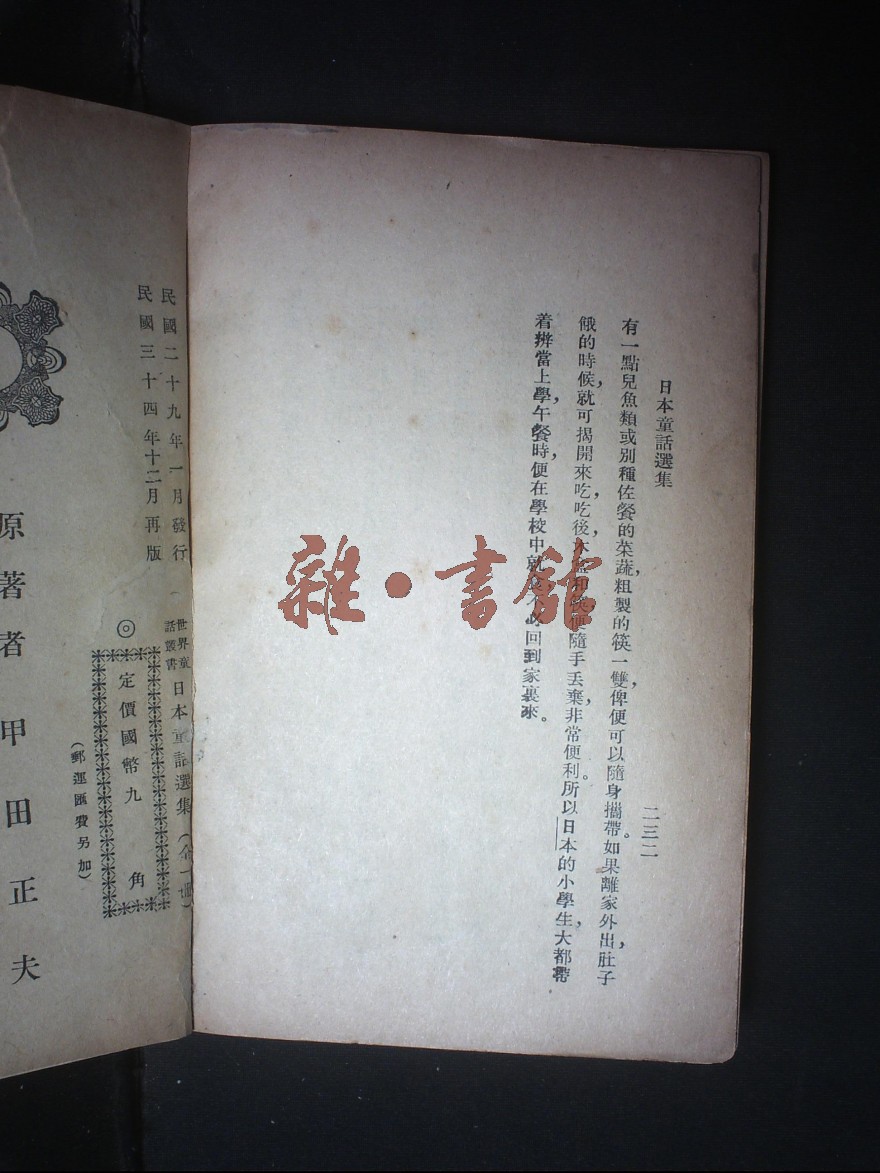 日本童話選集
二三二
有一點兒魚類或別種佐餐的菜蔬，粗製的筷一雙，俾便可以隨身攜帶。如果離家外出，肚子
餓的時候，就可揭開來吃，吃後木盒和筷，便隨手丟棄，非常便利。所以日本的小學生，大都帶
着辨當上學，午餐時，便在學校中就食，不必回到家裏來。
民國二十九年一月發行
民國三十四年十二月再版
世界童話叢書 日本童話選集（全一冊）
◎
定價國幣九角
（郵運匯費另加）
原著者 甲田正夫
雜·書館